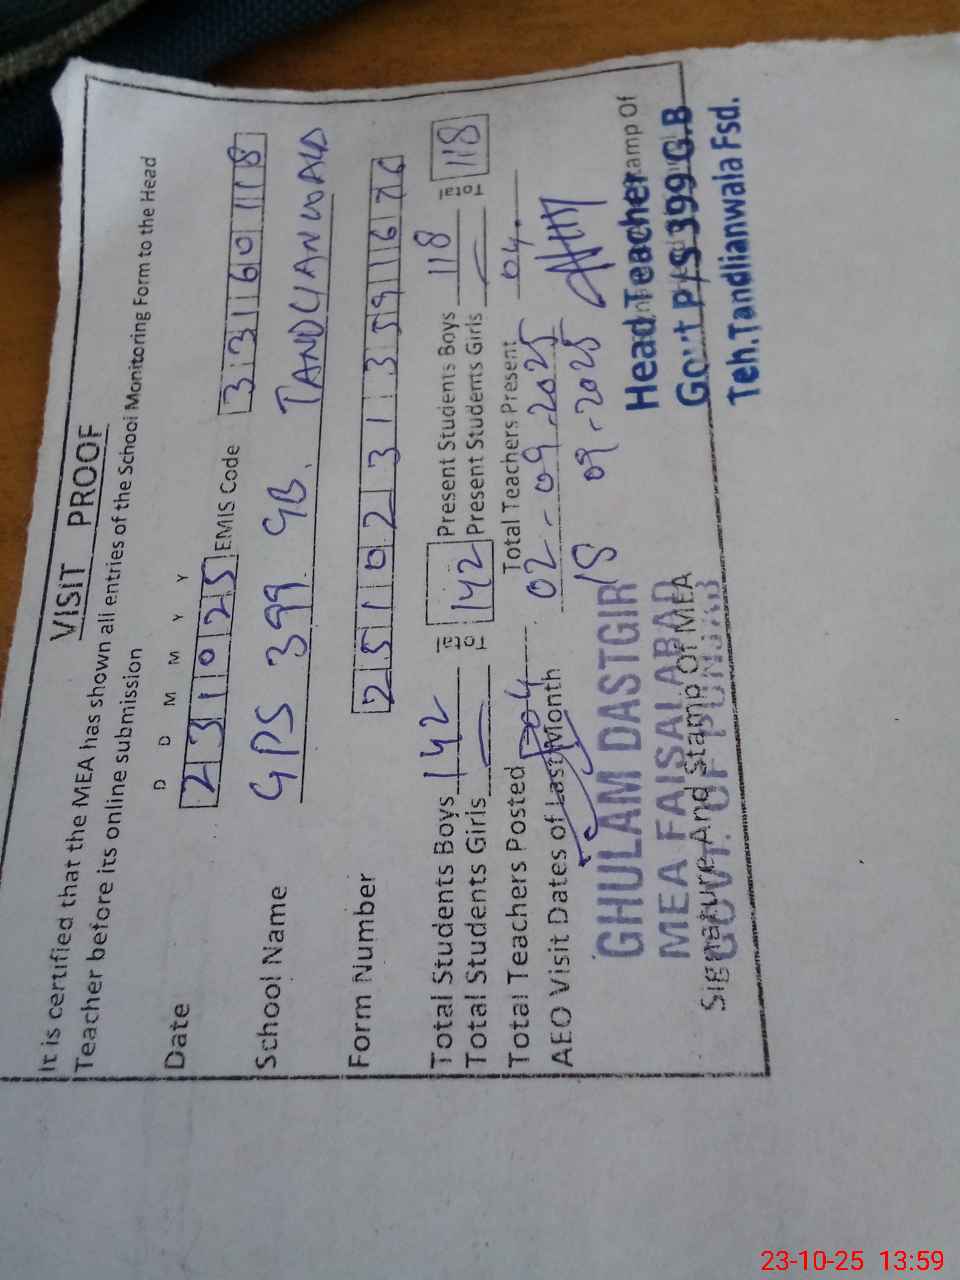 VISIT PROOF
It is certified that the MEA has shown all entries of the School Monitoring Form to the Head
Teacher before its online submission
D D M M Y Y
Date 231025 EMIS Code 33160118
School Name GPS 399 GB. TANDLIANWALA
Form Number 2510231359166
Total Students Boys 142 142 Present Students Boys 118 118
Total Students Girls — Present Students Girls —
Total Teachers Posted 04 Total Teachers Present 04.
AEO Visit Dates of Last Month 02-09-2025
18 09-2025
GHULAM DASTGIR
MEA FAISALABAD
GOVT. OF PUNJAB
Signature And stamp Of MEA
Head Teacher
Govt P/S 399 G.B
Teh.Tandlianwala Fsd.
Stamp Of
23-10-25 13:59